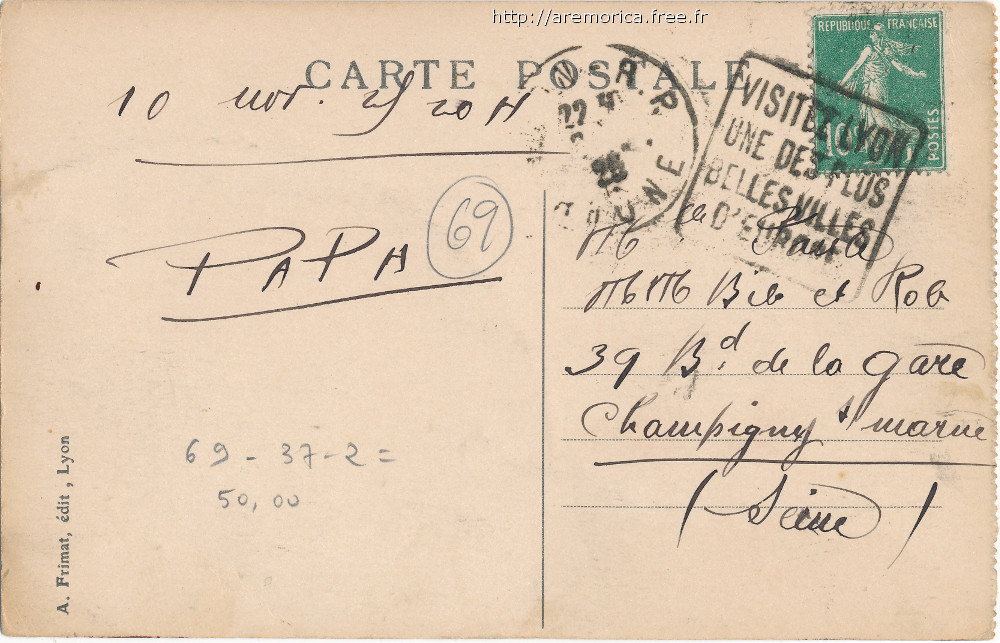 http://aremorica.free.fr
CARTE POSTALE
REPUBLIQUE FRANÇAISE
10
POSTES
VISITEZ LYON
UNE DES PLUS
BELLES VILLES
D'EUROPE
10 nov. 20 H
22
PAPA
69
Mlle
MM Bib et Rob
39 Bd. de la gare
Champigny s marne
(Seine)
69-37-2=
50,00
A. Frimat, édit, Lyon